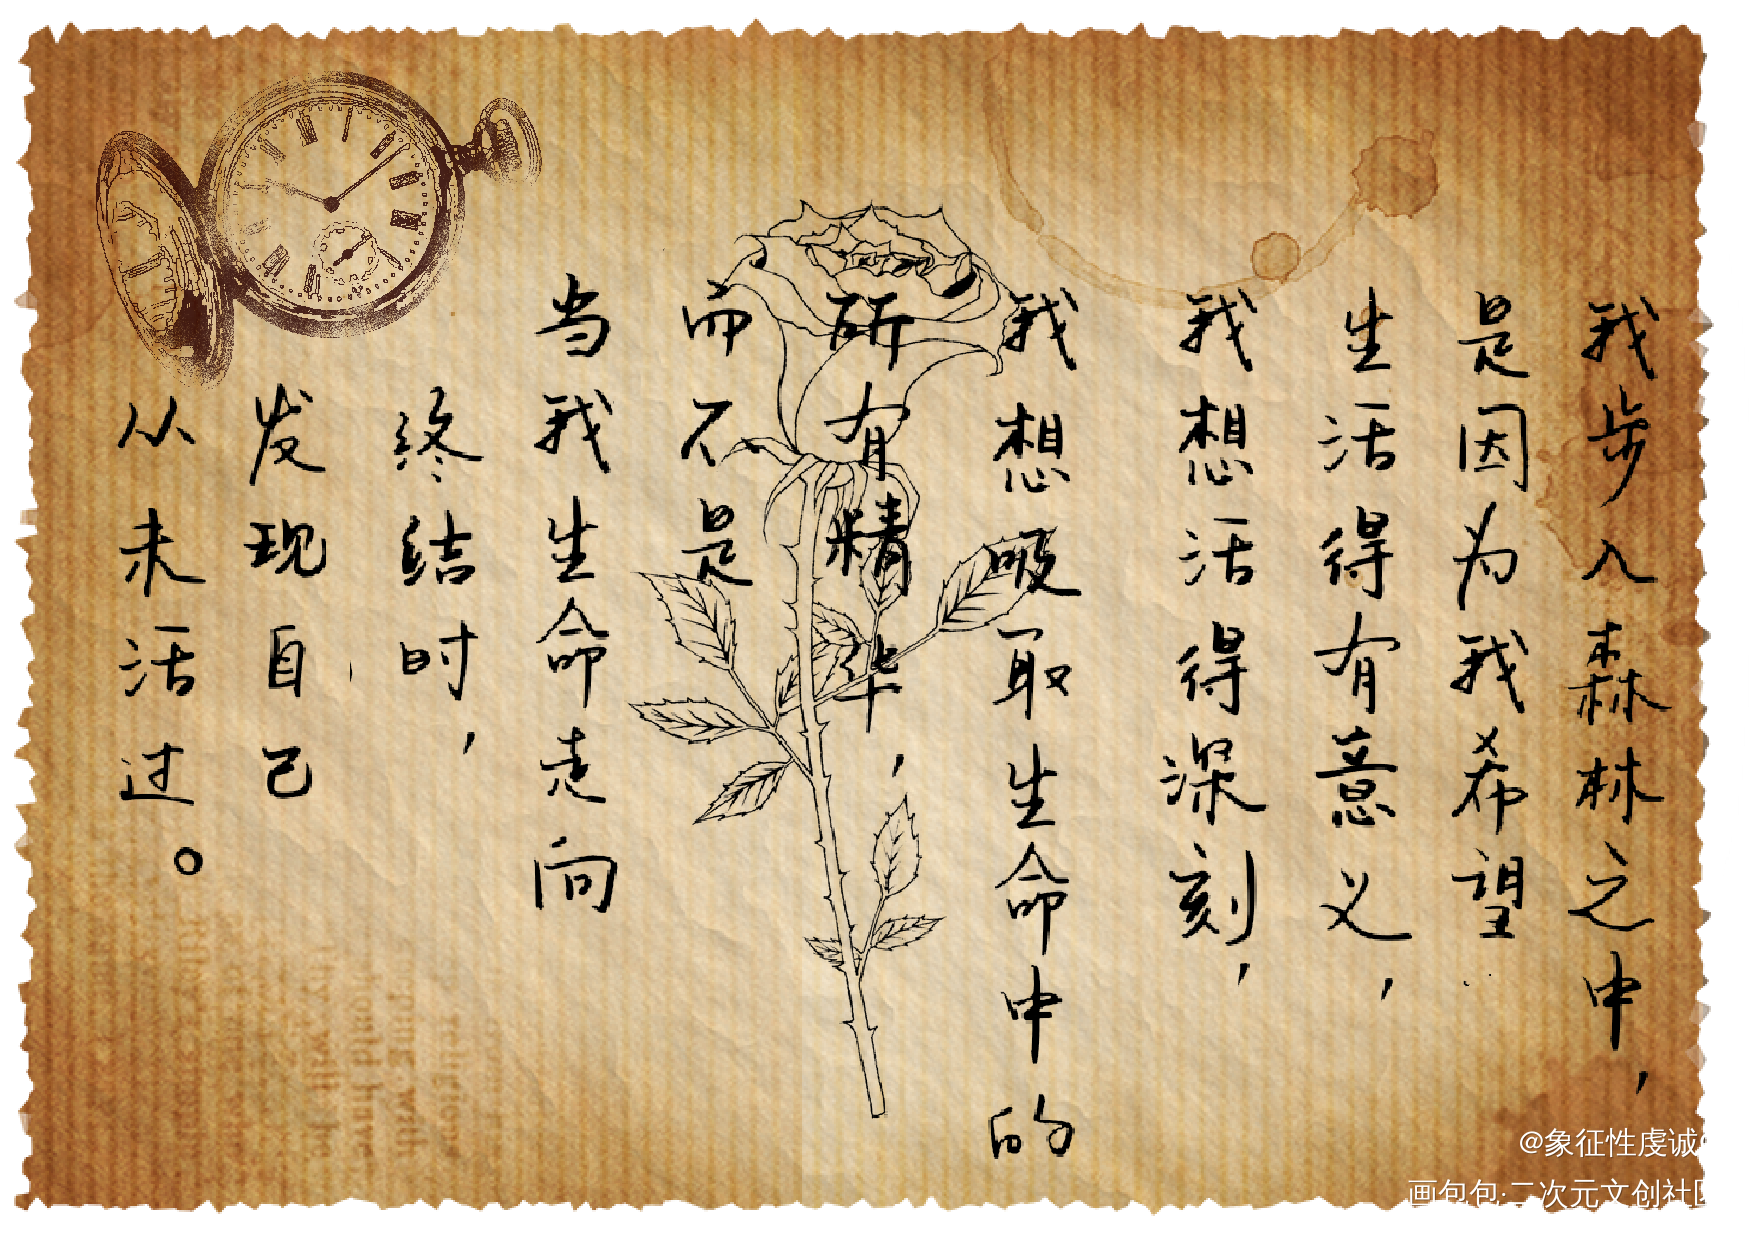 我步入森林之中，
是因为我希望
生活得有意义，
我想活得深刻，
我想吸取生命中的
所有精华，
而不是
当我生命走向
终结时，
发现自己
从未活过。
@象征性虔诚
画包包·二次元文创社